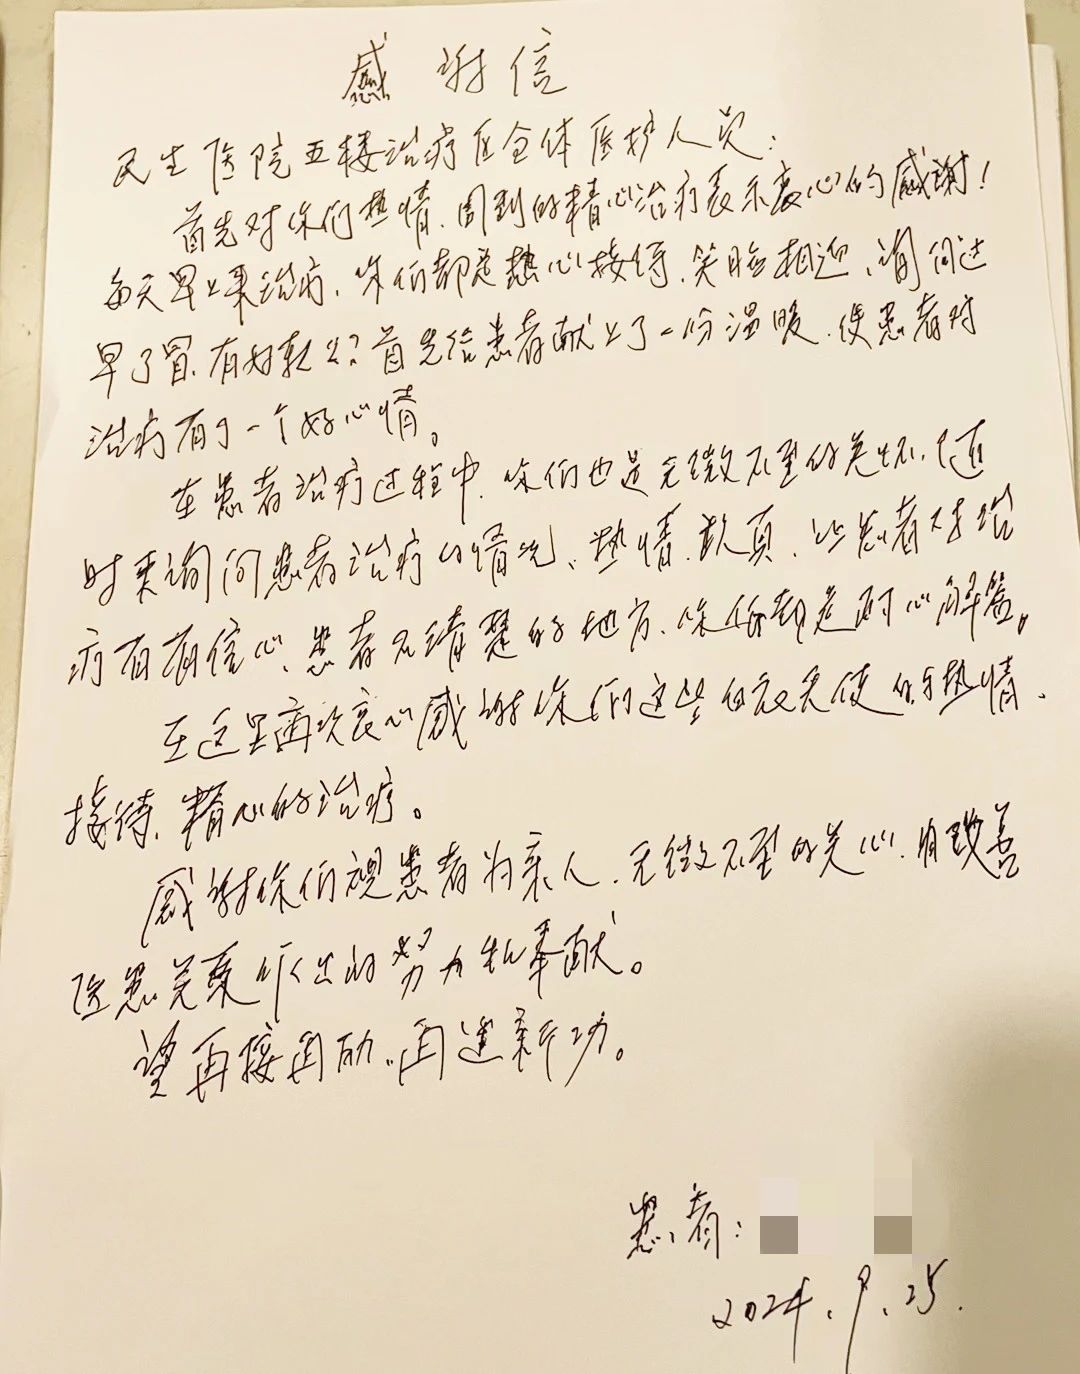 感谢信
民生医院五楼治疗区全体医护人员:
首先对你们热情、周到的精心治疗表示衷心的感谢!
每天早上来治疗、你们都是热心接待、笑脸相迎、询问过
早了冒、有好转么?首先给患者献上了一份温暖、使患者对
治疗有了一个好心情。
在患者治疗过程中、你们也是无微不至的关怀、适
时来询问患者治疗的情况、热情、认真、让患者对治
疗有有信心、患者不清楚的地方、你们都是耐心解答。
在这里再次衷心感谢你们这些白衣天使的热情、
接待、精心的治疗。
感谢你们视患者为亲人、无微不至的关心、用改善
医患关系所作出的努力和奉献。
望再接再励、再造新功。
患者:
2024.9.25.